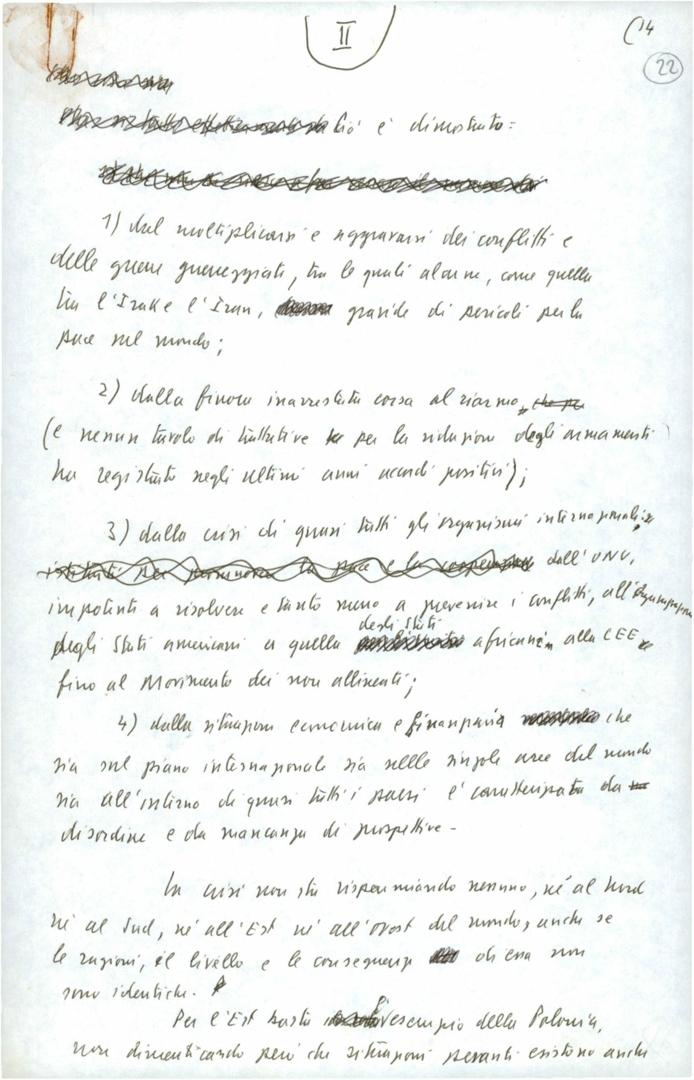 II
14
22
Ciò è dimostrato:
1) dal moltiplicarsi e aggravarsi dei conflitti e
delle guerre guerreggiate, tra le quali alcune, come quella
tra l'Irak e l'Iran, gravide di pericoli per la
pace nel mondo;
2) dalla finora inarrestata corsa al riarmo
(e nessun tavolo di trattative per la riduzione degli armamenti
ha registrato negli ultimi anni accordi positivi);
3) dalla crisi di quasi tutti gli organismi internazionali:
istituiti per promuovere la pace e la cooperazione dall'ONU,
impotenti a risolvere e tanto meno a prevenire i conflitti, all'Organizzazione
degli Stati
degli Stati americani a quella africani, alla CEE
fino al Movimento dei non allineati;
4) dalla situazione economica e finanziaria che
sia sul piano internazionale sia nelle singole aree del mondo
sia all'interno di quasi tutti i paesi è caratterizzata da
disordine e da mancanza di prospettive -
La crisi non sta risparmiando nessuno, né al Nord
né al Sud, né all'Est né all'Ovest del mondo, anche se
le ragioni, il livello e le conseguenze di essa non
sono identiche.
Per l'Est basta l'esempio della Polonia,
non dimenticando però che situazioni pesanti esistono anche